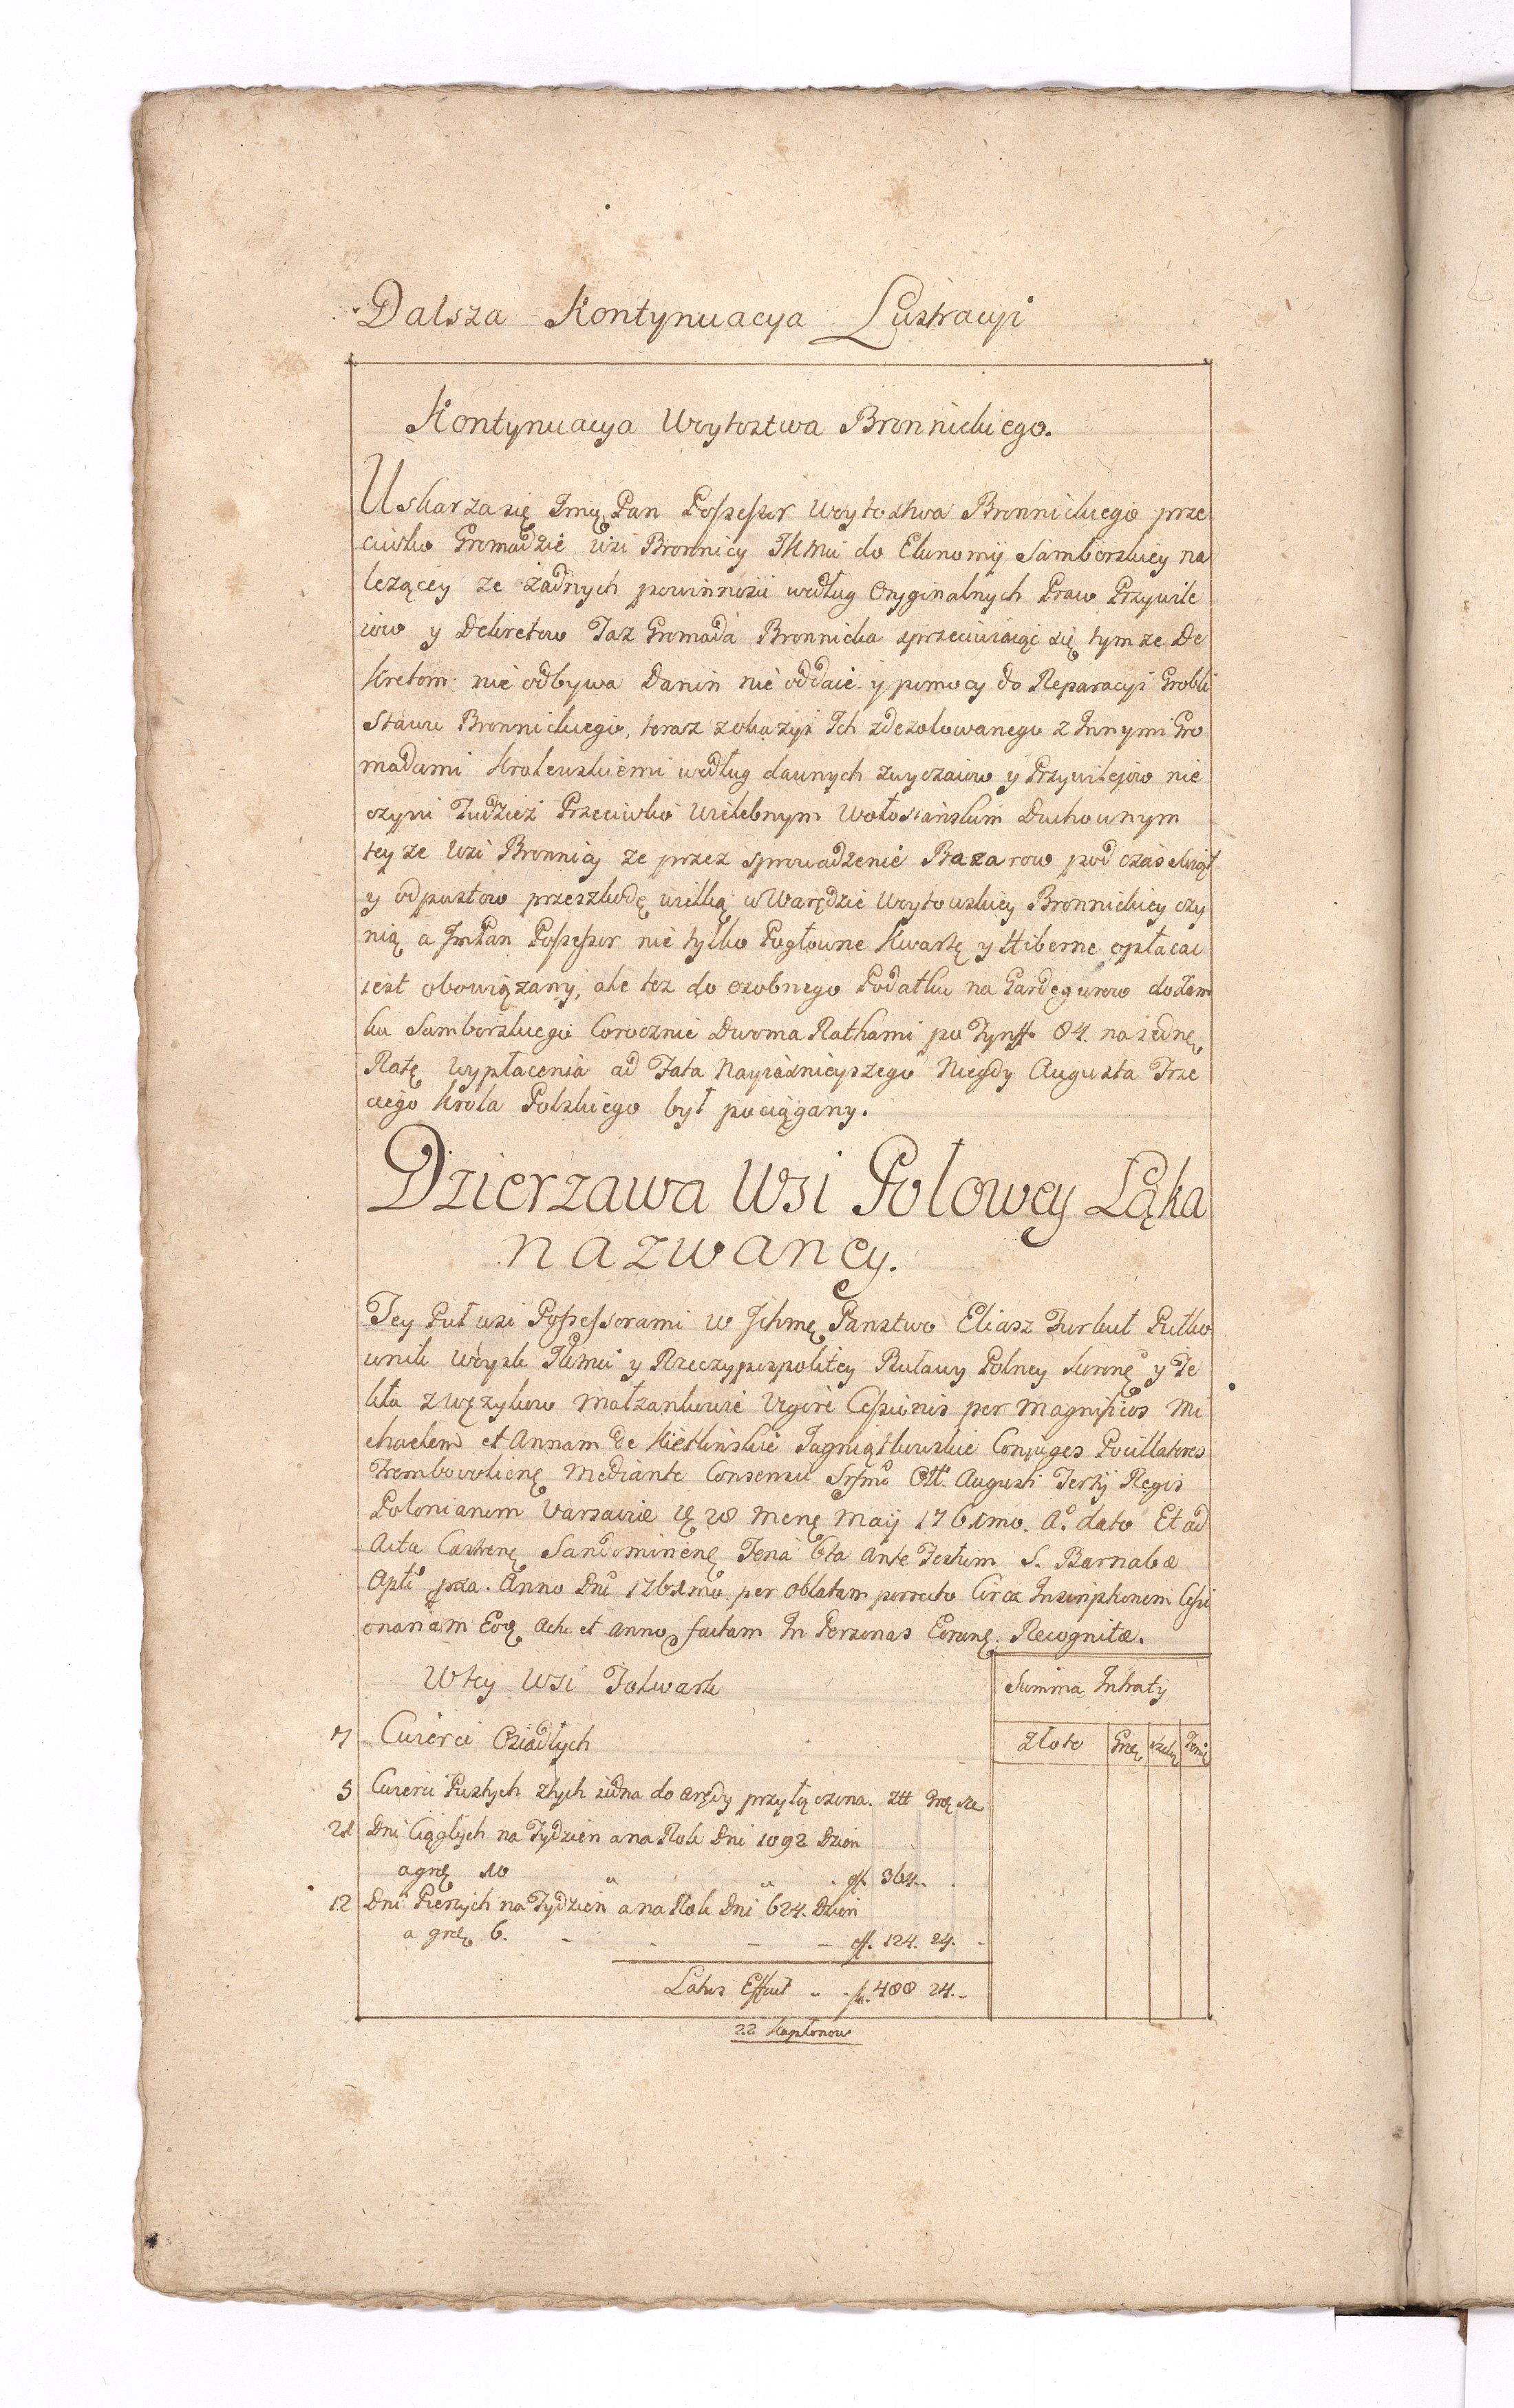 Dalsza Kontynuacya Lustracyi
Kontynuacya Woytostwa Bronnickiego.
Uskarza się Jmę Pan Possessor Woytostwa Bronnickiego prze
ciwko Gromadzie Wsi Bronnicy JKMci do Ekonomij Samborskiey na
lezącey ze żadnych powinnosci według Oryginalnych Praw Przywile
iow y Dekretow Taz Gromada Bronnicka sprzeciwiaiąc się tym ze De
kretom nie odbywa Danin nie oddaie y pomocy do Reparacyi Grobli
Stawu Bronnickiego, teraz z okazyi Ich zdezolowanego z Innymi Gro
madami Krolewskiemi według dawnych zwyczaiow y Przywilejow nie
czyni Tudziez Przeciwko Wielebnym Wołosianskim Duchownym
tey ze Wsi Bronnicy ze przez sprowadzenie Bazarow pod czas Swiąt
y odpustow przeszkodę wielką w Warędzie Woytowskiey Bronnickiey czy
nią a JmPan Possessor nie tylko Pogłowne Kwartę y Hiberne opłacac
iest obowiązany, ale tez do osobnego Podatku na Pardęgurow do Zam
ku Samborskiego Corocznie Dwoma Rathami po Tynff. 84. na iednę
Ratę wypłacenia ad Fata Nayiasnieyszego Niegdy Augusta Trze
ciego Krola Polskiego był pociągany.
Dzierzawa Wsi Polowey Łąka
nazwaney.
Tey Puł wsi Possessorami W Jchmę Panstwo Eliasz Turkuł Pułko
wnik Woysk JKMci y Rzeczypospolitey Buławy Polney Koronę y Te
kla z Węzykow Małzonkowie Vigore Cessionis per Magnificos Mi
chaelem et Annam de Kietlinskie Jagniątkowskie Conjuges Pocillatores
Trembovolienę Mediante Consensu Srsmo Olt. Augusti Tertij Regis
Poloniarum Varsaviæ 28 Menę Maij 1761mo. Ao. dato Et ad
Acta Castrenę Sandominenę Fena 6ta Ante Festum S. Barnabæ
Apłi pxa. Anno Dni 1761mo per Oblatam porrecto Circa Inscriptionem Cessi
onariam Eoę Actu et anno factam In Personas Eorunę Recognitæ.
W tey Wsi Folwark
Summa Intraty
7 Cwierci Osiadłych
Złoto Gnę Szelę
5 Cwierci Pustych ztych iedna do arędy przyłączona. Złł Groę Sze
21 Dni Ciągłych na Tydzien a na Rok Dni 1092 Dzien
a gnę 10 " " ff. 364..
12 Dni Pieszych na Tydzien a na Rok Dni 624. Dzien
a gnę 6. - - - - ff. 124. 24. -
Latus Efficit - - f. 488 24. -
22 Kapłonow